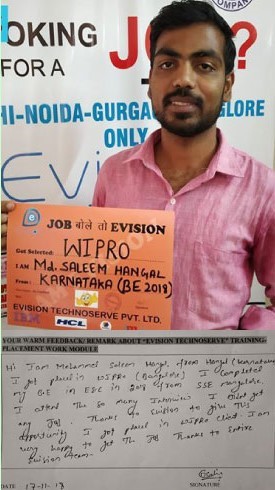 COMPANY
OKING JO ?
FOR A
HI-NOIDA-GURGA LORE
ONLY
Evi
JOB बोले तो EVISION
Got Selected: WIPRO
I AM Md. SALEEM HANGAL
From: KARNATAKA (BE 2018)
EVISION TECHNOSERVE PVT. LTD.
IBM HCL
YOUR WARM FEEDBACK/ REMARK ABOUT "EVISION TECHNOSERVE" TRAINING-
PLACEMENT WORK MODULE
Hi I am Mohammed Saleem Hangal from Hangal (Karnataka)
I got place in WIPRO (Banglore) I completed
my B.E in E&C in 2018 from SSE manglore.
I attend the so many Interviews I didnt get
any job. Thanks to Evision to give this
opportunity I got placed in WIPRO client. I am
very happy to get the JOB Thanks to Entire
Evision team.
DATE 17-11-18
SIGNATURE